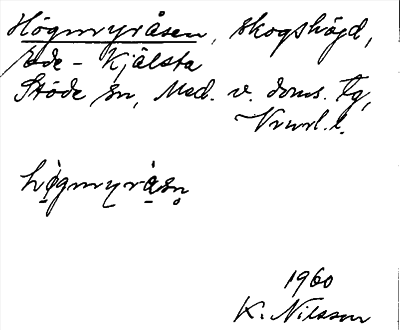 Högmyråsen, skogshöjd,
Ede - Kjälsta
Stöde sn, Med. v. doms. tg,
Vnrl. l.
högmyråsn̥
1960
K. Nilsson